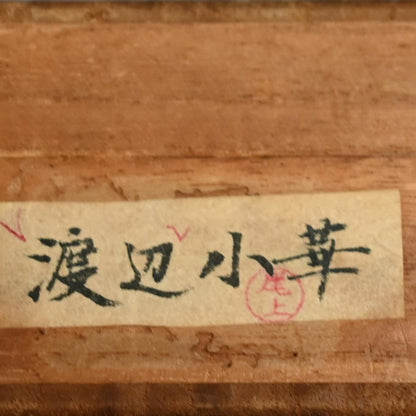 渡辺小華
尾上